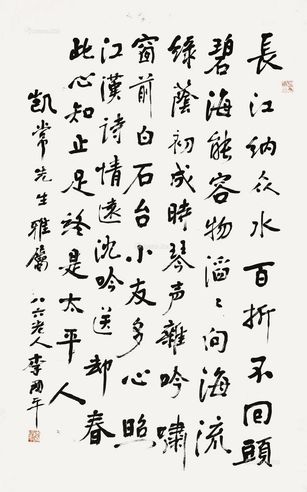 長江納众水百折不回頭
碧海能容物滔滔向海流
綠蔭初成時琴声雜吟嘯
窗前白石台小友多心照
江漢詩情遠沈吟送却春
此心知止足終是太平人
凯常先生雅屬
八六老人李國平